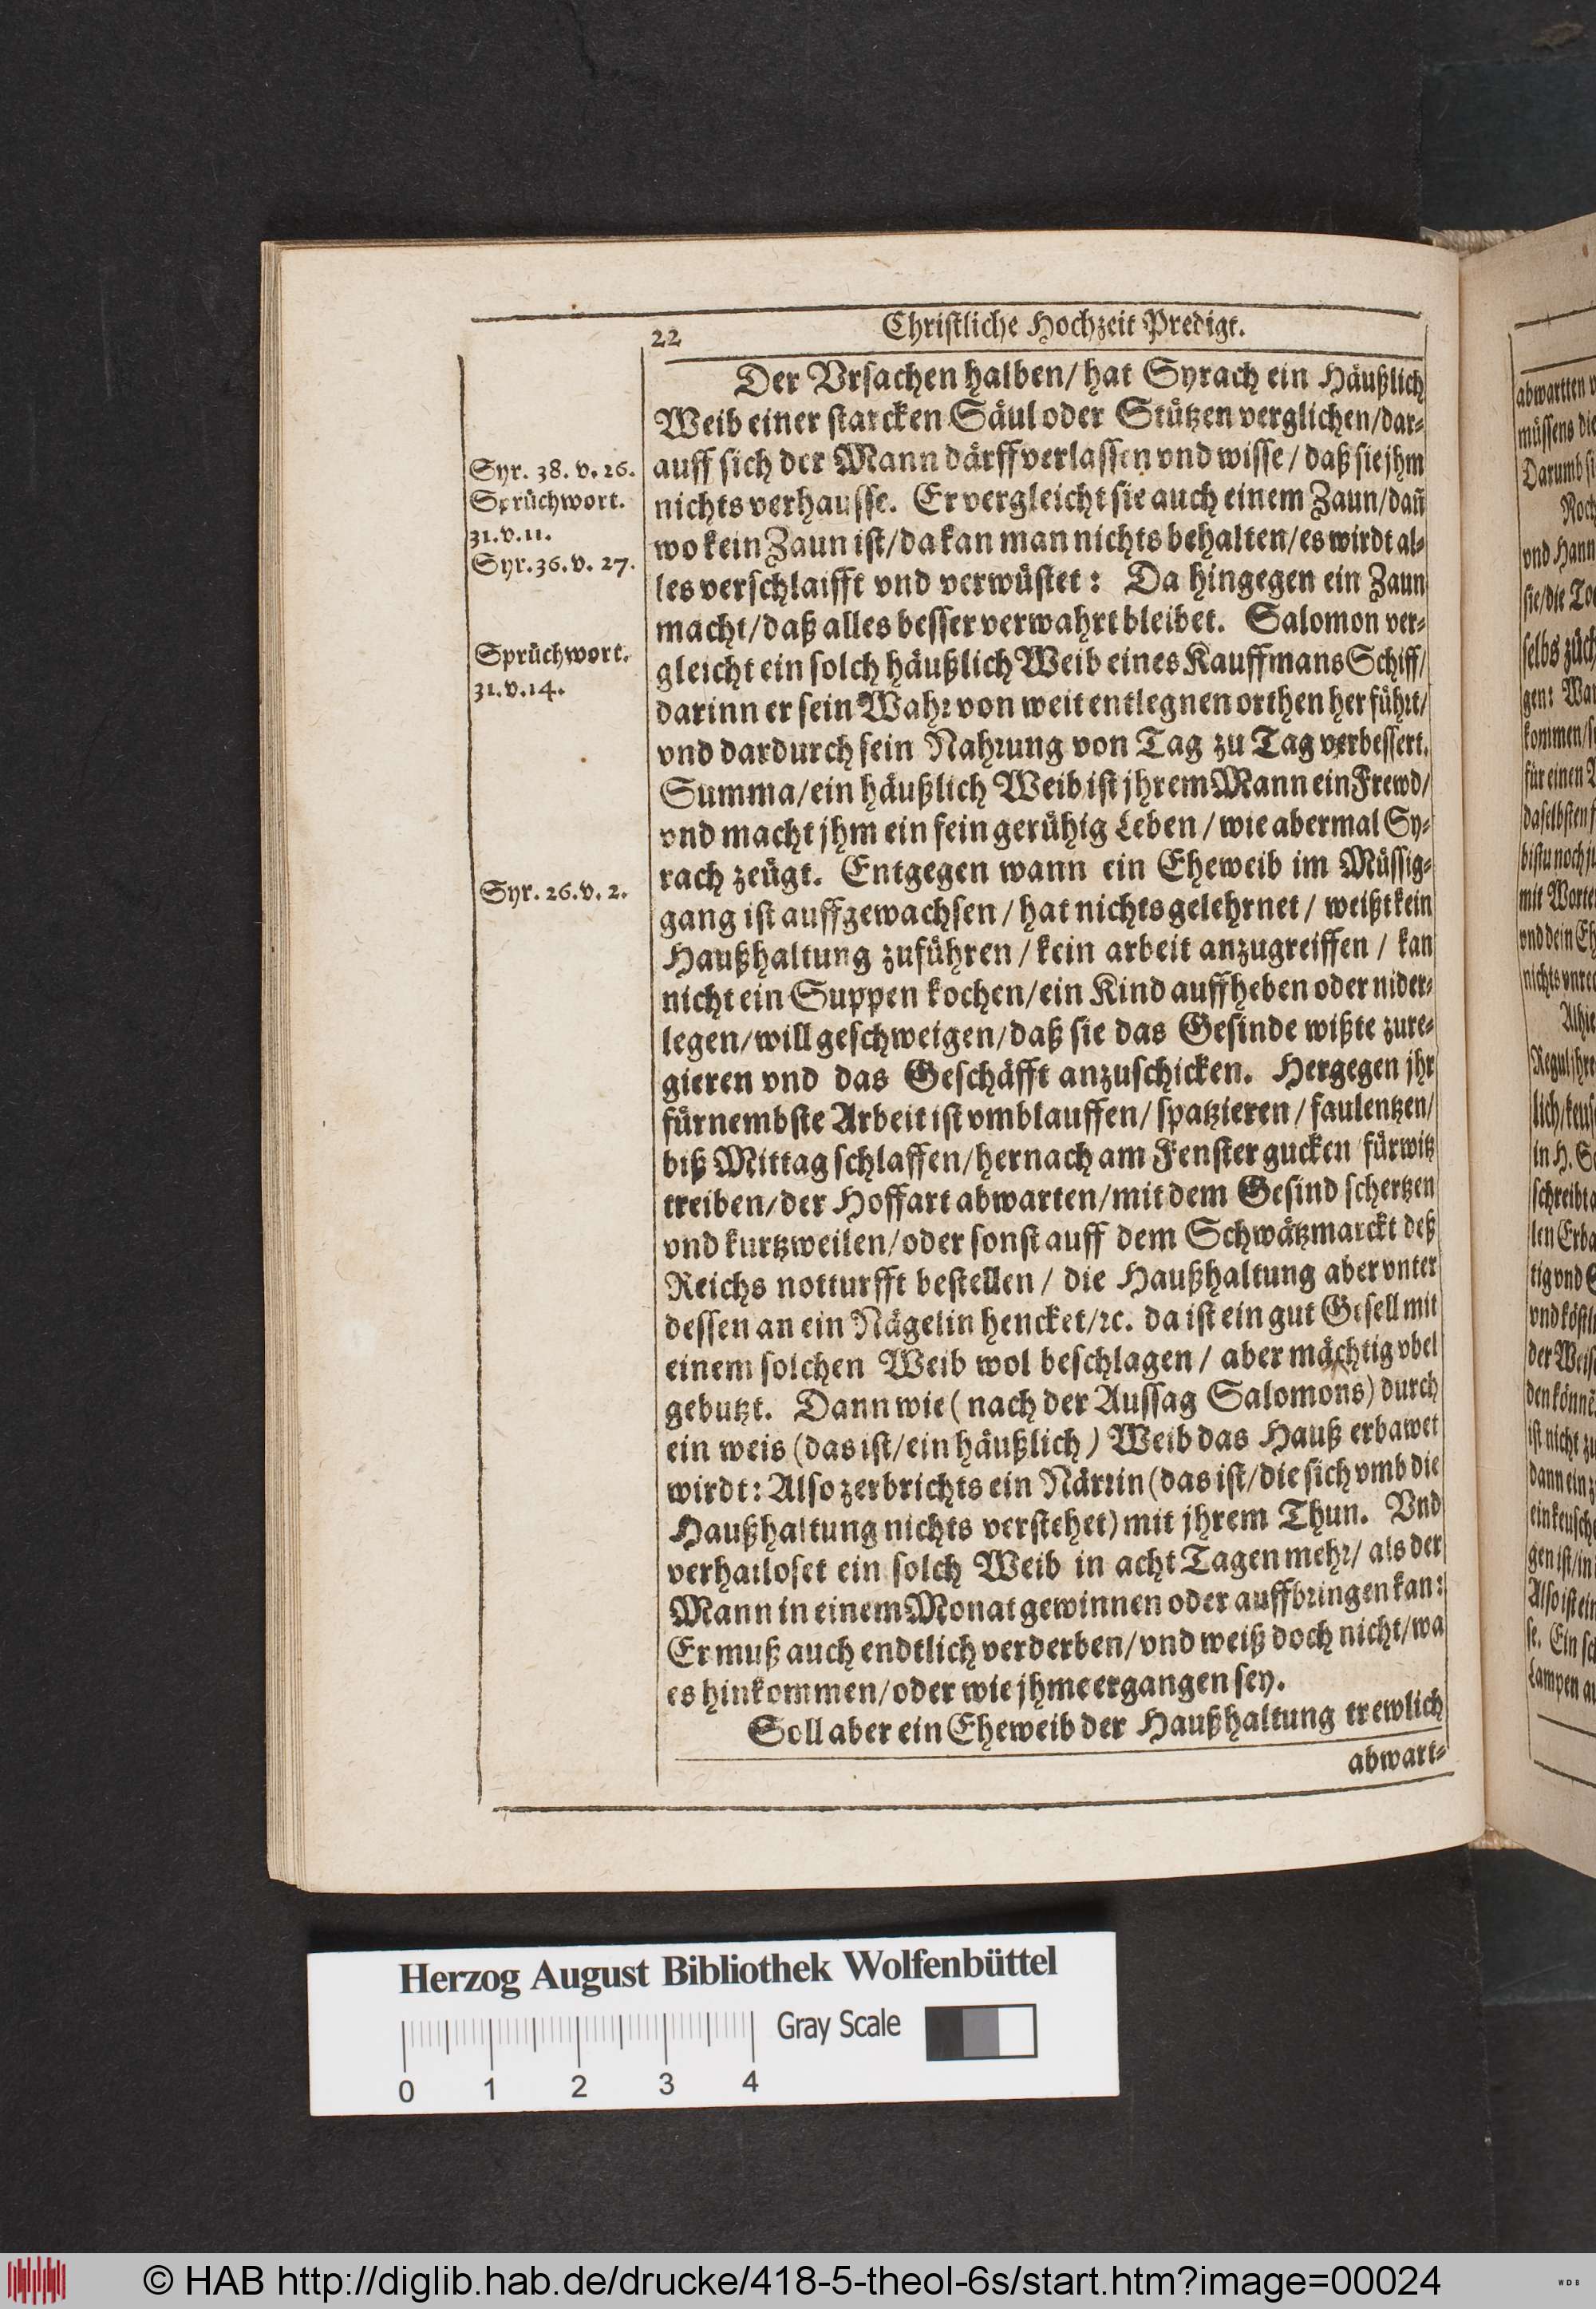 22
Christliche Hochzeit Predigt.
Der Vrsachen halben/ hat Syrach ein Häußlich
Weib einer starcken Säul oder Stützen verglichen/dar-
auff sich der Mann därff verlassen vnd wisse/ daß sie jhm
nichts verhausse. Er vergleicht sie auch einem Zaun/dañ
wo kein Zaun ist/da kan man nichts behalten/es wirdt al-
les verschlaifft vnd verwüstet: Da hingegen ein Zaun
macht/daß alles besser verwahrt bleibet. Salomon ver-
gleicht ein solch häußlich Weib eines Kauffmans Schiff/
darinn er sein Wahr von weit entlegnen orthen her führt/
vnd dardurch sein Nahrung von Tag zu Tag verbessert.
Summa/ein häußlich Weib ist jhrem Mann ein Frewd/
vnd macht jhm ein fein gerühig Leben/ wie abermal Sy-
rach zeügt. Entgegen wann ein Eheweib im Müssig-
gang ist auffgewachsen/ hat nichts gelehrnet/ weißt kein
Haußhaltung zuführen/ kein arbeit anzugreiffen/ kan
nicht ein Suppen kochen/ein Kind auffheben oder nider-
legen/will geschweigen/daß sie das Gesinde wißte zure-
gieren vnd das Geschäfft anzuschicken. Hergegen jhr
fürnembste Arbeit ist vmblauffen/ spatzieren/ faulentzen/
biß Mittag schlaffen/hernach am Fenster gucken fürwitz
treiben/der Hoffart abwarten/mit dem Gesind schertzen
vnd kurtzweilen/oder sonst auff dem Schwätzmarckt deß
Reichs notturfft bestellen/ die Haußhaltung aber vnter
dessen an ein Nägelin hencket/ꝛc. da ist ein gut Gesell mit
einem solchen Weib wol beschlagen/ aber mächtig vbel
gebutzt. Dann wie (nach der Aussag Salomons) durch
ein weis (das ist/ein häußlich) Weib das Hauß erbawet
wirdt: Also zerbrichts ein Närrin (das ist/die sich vmb die
Haußhaltung nichts verstehet) mit jhrem Thun. Vnd
verhailoset ein solch Weib in acht Tagen mehr/ als der
Mann in einem Monat gewinnen oder auffbringen kan:
Er muß auch endtlich verderben/vnd weiß doch nicht/wa
es hinkommen/oder wie jhme ergangen sey.
Soll aber ein Eheweib der Haußhaltung trewlich
abwart-
Syr. 38. v. 26.
Sprüchwort.
31. v. 11.
Syr. 36. v. 27.
Sprüchwort.
31. v. 14.
Syr. 26. v. 2.
Herzog August Bibliothek Wolfenbüttel
Gray Scale
0 1 2 3 4
© HAB http://diglib.hab.de/drucke/418-5-theol-6s/start.htm?image=00024